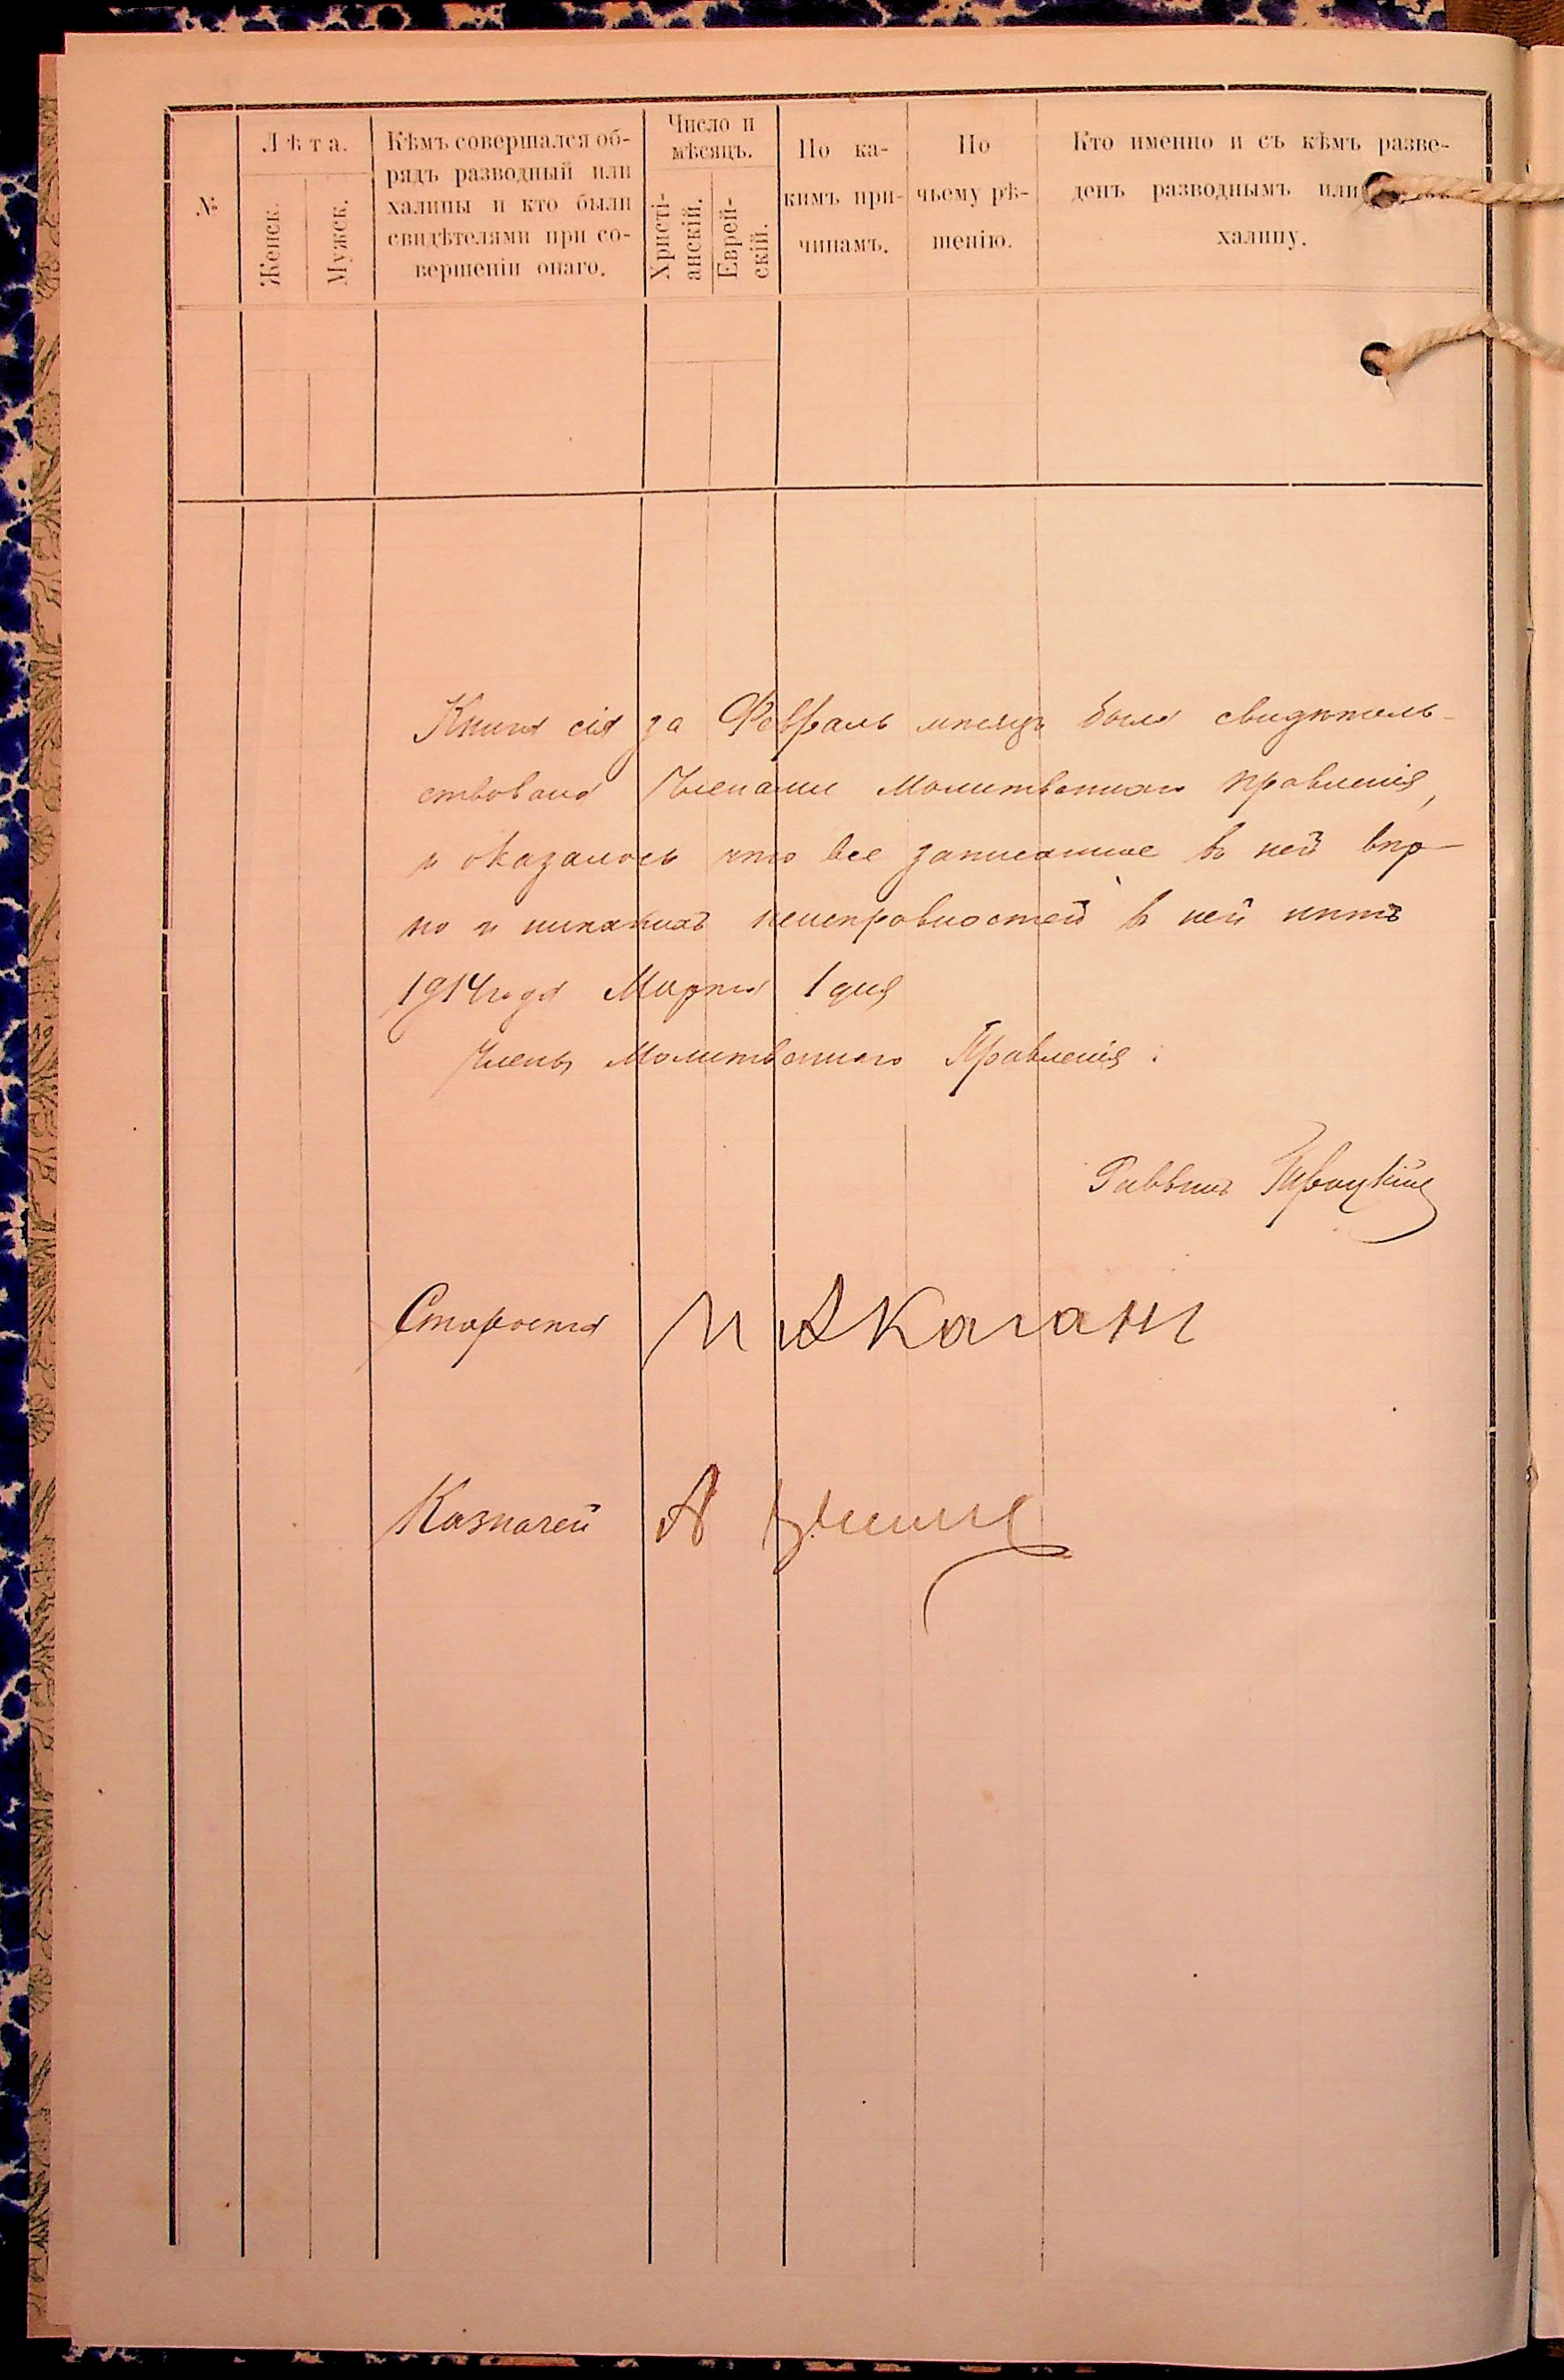 №
Лѣта.
Женск.
Мужск.
Кѣмъ совершался об-
рядъ разводный или
халицы и кто были
свидѣтелями при со-
вершеніи онаго.
Число и
мѣсяцъ.
Христі-
анскій.
Еврей-
скій.
По ка-
кимъ при-
чинамъ.
По
чьему рѣ-
шенію.
Кто именно и съ кѣмъ разве-
денъ разводнымъ или
халицу.
Книга сія за Февраль мѣсяцъ была свидѣтель-
ствована Членами Молитвеннаго правленія,
и оказалось что все записанное въ ней вѣр-
но и никакихъ неисправностей въ ней нѣтъ
1914 года Марта 1 дня
Члены Молитвеннаго Правленія:
Раввинъ
Староста И А Каганъ
Казначей А